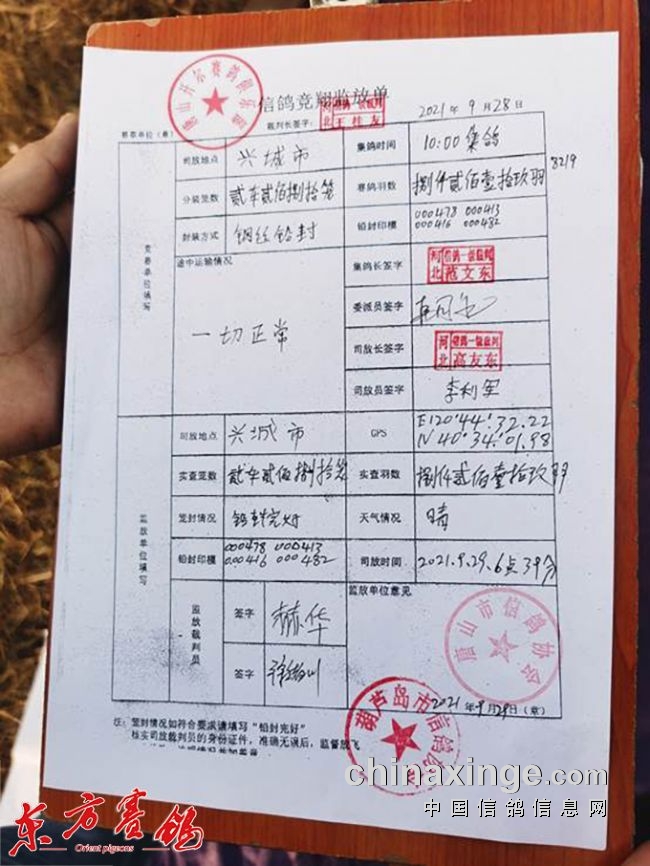 信鸽竞翔监放单
裁判长签字：
河北 信鸽一级裁判 王桂友
2021年9月28日
司放地点 兴城市 集鸽时间 10:00集鸽
分装笼数 贰车贰佰捌拾笼 赛鸽羽数 捌仟贰佰壹拾玖羽 8219
封装方式 钢丝铅封 铅封印模 000478 000413
000416 000482
竞赛单位填写
途中运输情况 集鸽长签字 河北 信鸽一级裁判 范文东
一切正常
委派员签字
司放长签字 河北 信鸽一级裁判 高友东
司放员签字 李利军
司放地点 兴城市 GPS E120°44'.32.22
N40°34'.01.98
实查笼数 贰车贰佰捌拾笼 实查羽数 捌仟贰佰壹拾玖羽
笼封情况 铅封完好 天气情况 晴
铅封印模 000478 000413
000416 000482
司放时间 2021.9.29.6点39分
监放单位填写
监放裁判员 签字 赫华
签字
监放单位意见
唐山市信鸽协会
葫芦岛市信鸽
2021年9月29日（章）
注：笼封情况如符合要求请填写“铅封完好”
核实司放裁判员的身份证件，准确无误后，监督放飞
东方赛鸽
Orient pigeons
chinaxinge.com
中国信鸽信息网